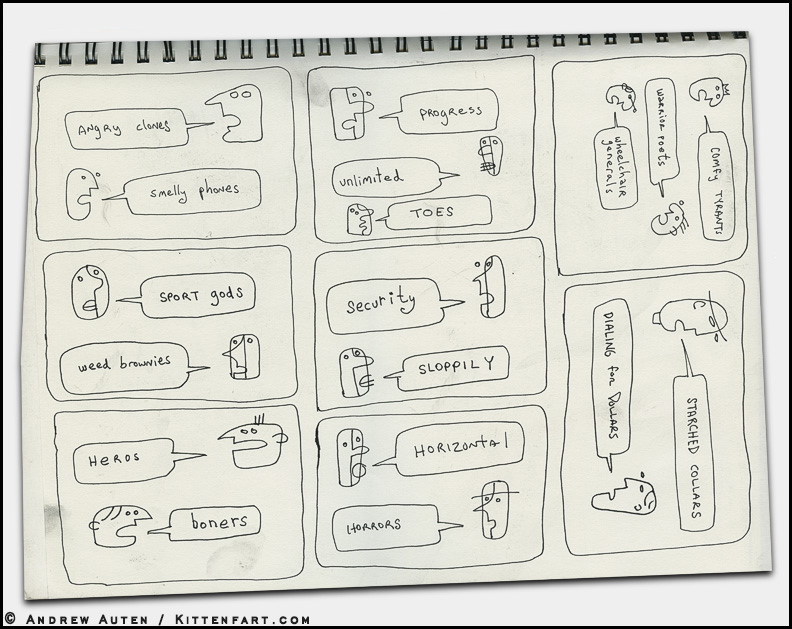 ANGRY CLONES
smelly phones
SPORT gods
weed brownies
HEROS
boners
PROGRESS
unlimited
TOES
security
SLOPPILY
HORIZONTAL
HORRORS
COMFY TYRANTS
WARRIOR POETS
wheelchair
generals
STARCHED COLLARS
DIALING for DOLLARS
© ANDREW AUTEN / KITTENFART.COM